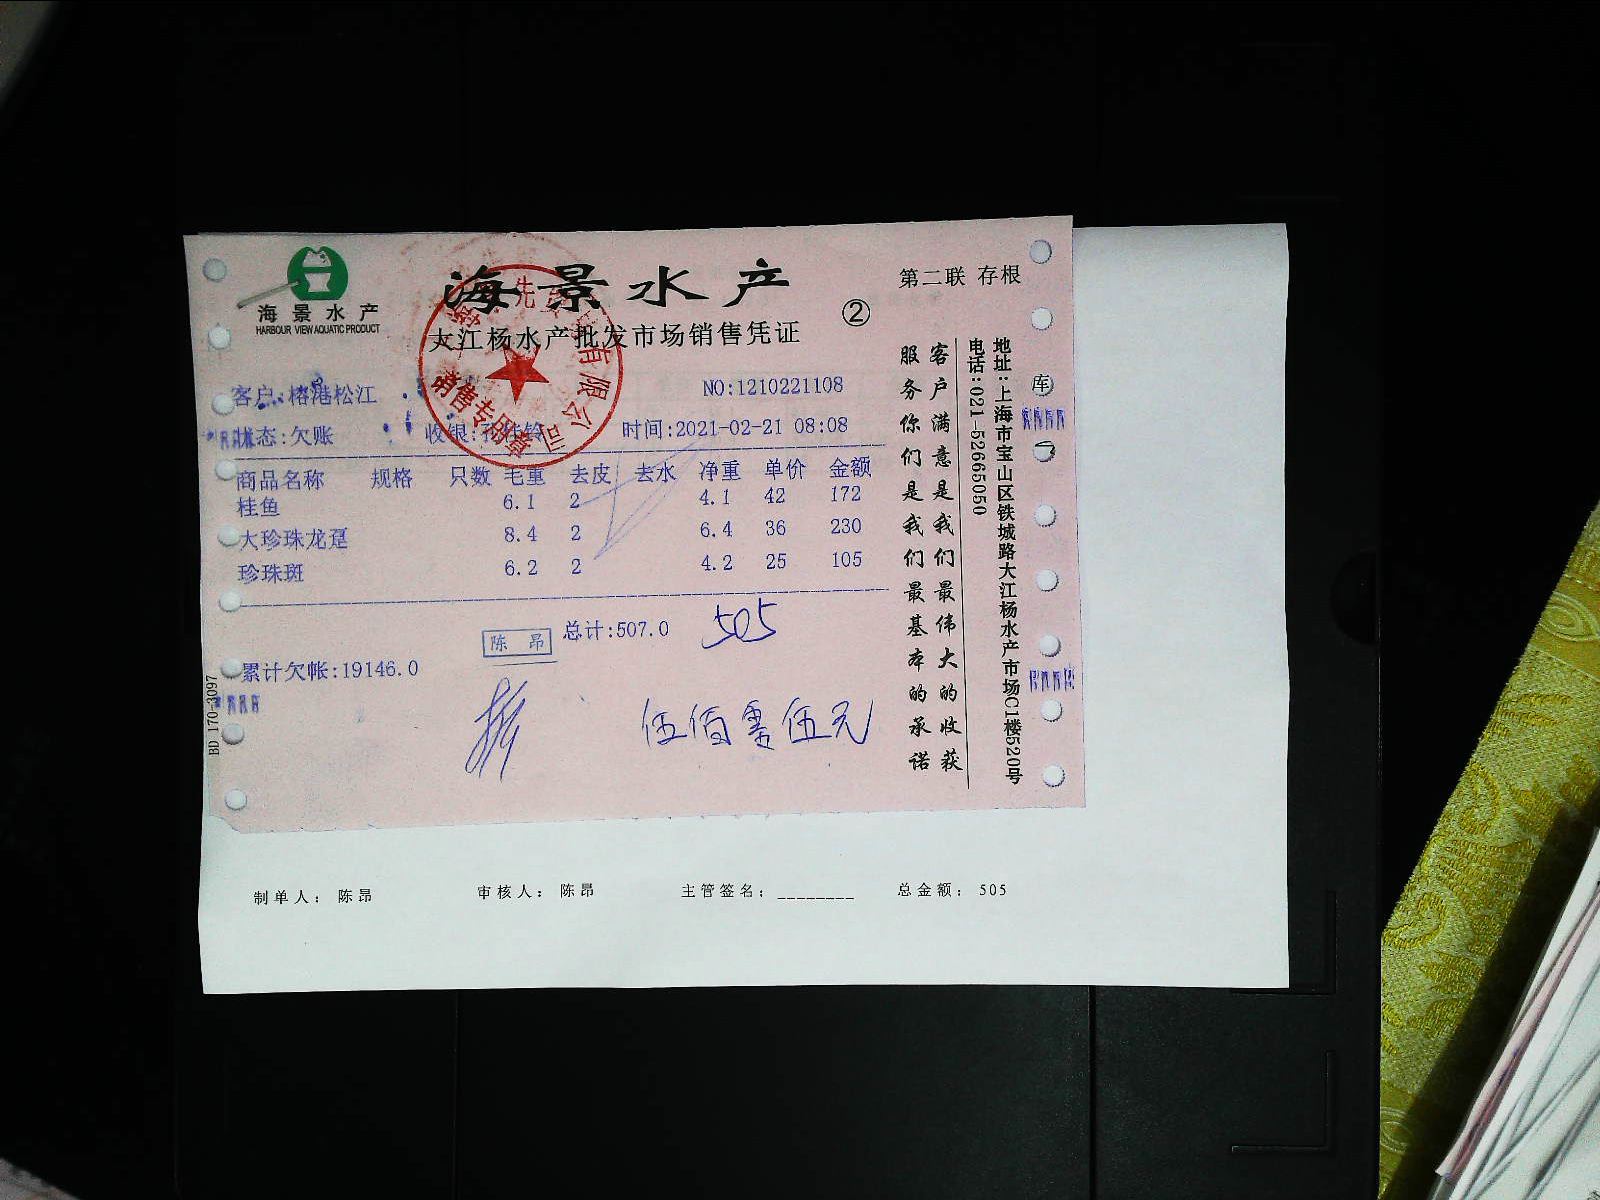 海景水产
HARBOUR VIEW AQUATIC PRODUCT
海景水产
大江杨水产批发市场销售凭证
②
第二联 存根
客户:榕港松江
NO:1210221108
状态:欠账
收银:
时间:2021-02-21 08:08
有限公司
销售专用章
商品名称 规格 只数 毛重 去皮 去水 净重 单价 金额
桂鱼 6.1 2 4.1 42 172
大珍珠龙趸 8.4 2 6.4 36 230
珍珠斑 6.2 2 4.2 25 105
陈昂
总计:507.0
505
累计欠帐:19146.0
伍佰零伍元
客户满意是我们最伟大的收获
服务你们是我们最基本的承诺
地址:上海市宝山区铁城路大江杨水产市场C1楼520号
电话:021-52665050
库
BD 170-3097
制单人: 陈昂 审核人: 陈昂 主管签名: ________ 总金额: 505